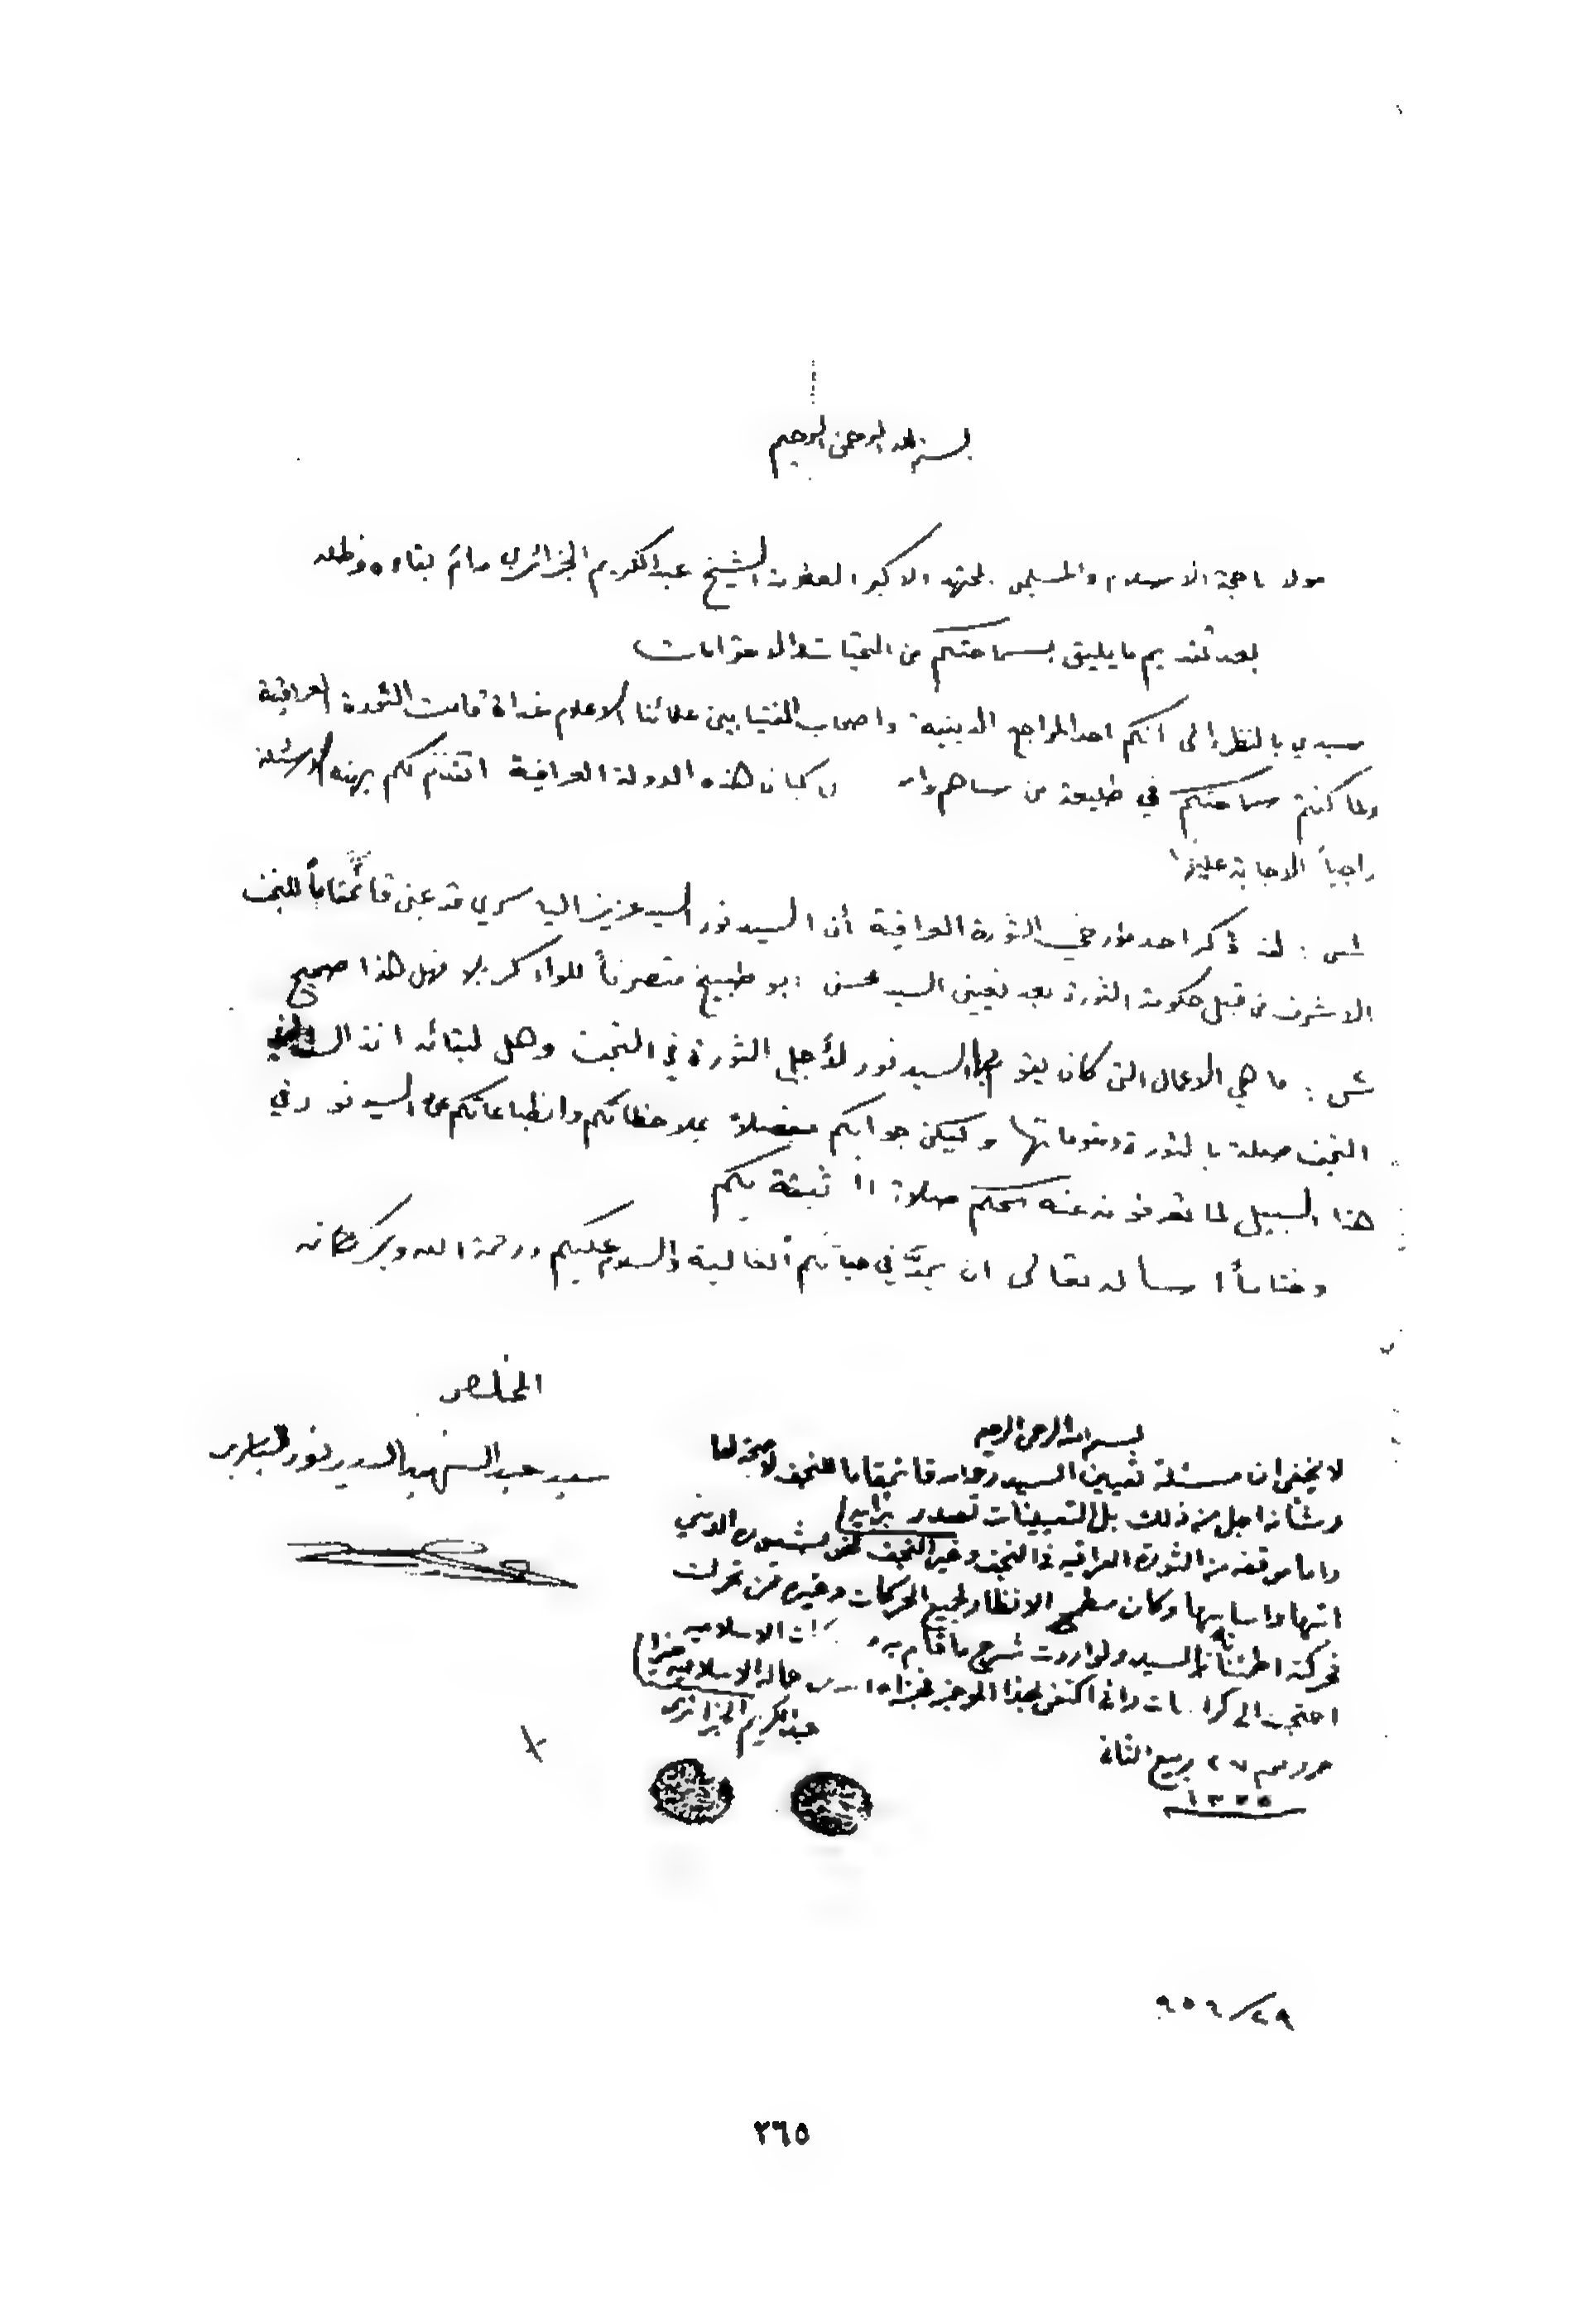 بسم الله الرحمن الرحيم
مولانا حجة الاسلام والمسلمين المجتهد الاكبر الشيخ عبدالكريم الجزائري دام بقاءه وظله
بعد تقديم ما يليق بسماحتكم من التحيات والاحترامات
سيدي بالنظر الى انكم احد المراجع الدينية واصحاب الفتيا بين علمائنا الاعلام غداة قامت الثورة العراقية
ولما كنتم سماحتكم في طليعة من ساهموا كيان هذه الدولة العراقية اتقدم لكم بهذه الاسئلة
راجياً الاجابة عليها
س١ : لقد ذكر احد مؤرخي الثورة العراقية أن السيد نور السيد عزيز الياسري قد عين قائممقاماً للنجف
الاشرف من قبل حكومة الثورة بعد تعيين السيد محسن ابو طبيخ متصرفاً للواء كربلا فهل هذا صحيح
س٢ : ما هي الاعمال التي كان يقوم بها السيد نور لأجل الثورة في النجف وهل لبقائه انذاك في
النجف صلة بالثورة ومقوماتها وليكن جوابكم مفصلاً بملاحظاتكم وانطباعاتكم عن السيد نور في
هذا السبيل لما تعرفونه عنه بحكم صلاته الوثيقة بكم
وختاماً اسأله تعالى ان يمدّ في حياتكم الغالية والسلام عليكم ورحمة الله وبركاته
المخلص
سيد عبد الشهيد السيد نور الياسري
بسم الله الرحمن الرحيم
لا يخفى ان مسئلة تعيين السيد نور قائممقاما للنجف لا صحة لها
وشأنه اجل من ذلك بل التعيينات تصدر برأيه
واما موقفه من الثورة العراقيه في النجف وغير النجف الديني
انتهاء اسبابها وكان مطمح الانظار لجميع الحركات وغيره من تحرك
فحركته اطمئنانا بالسيد ولو اردت شرح ما قام به الاسلاميه
احتجت الى كراسات واني اكتفي بهذا الموجز فجزاه الله الاسلاميه خيرا
عبدالكريم الجزائري
حرر يوم ٢٧ ربيع الثاني
١٣٧٥
٢٩/٩٥٦
٣٦٥